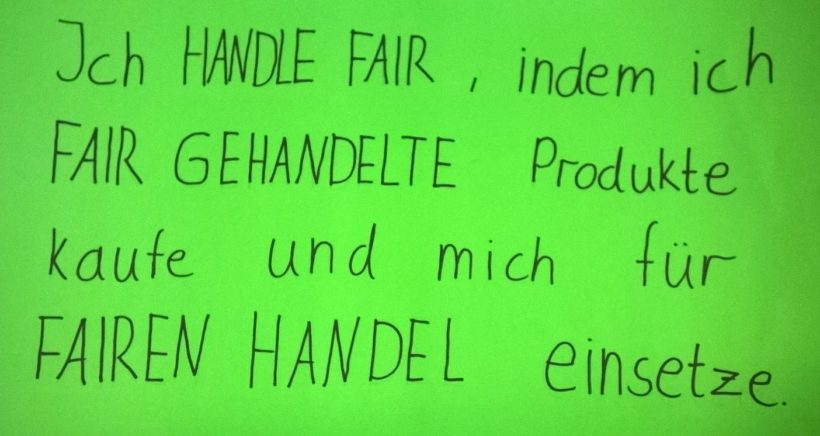 Ich HANDLE FAIR, indem ich
FAIR GEHANDELTE Produkte
kaufe und mich für
FAIREN HANDEL einsetze.